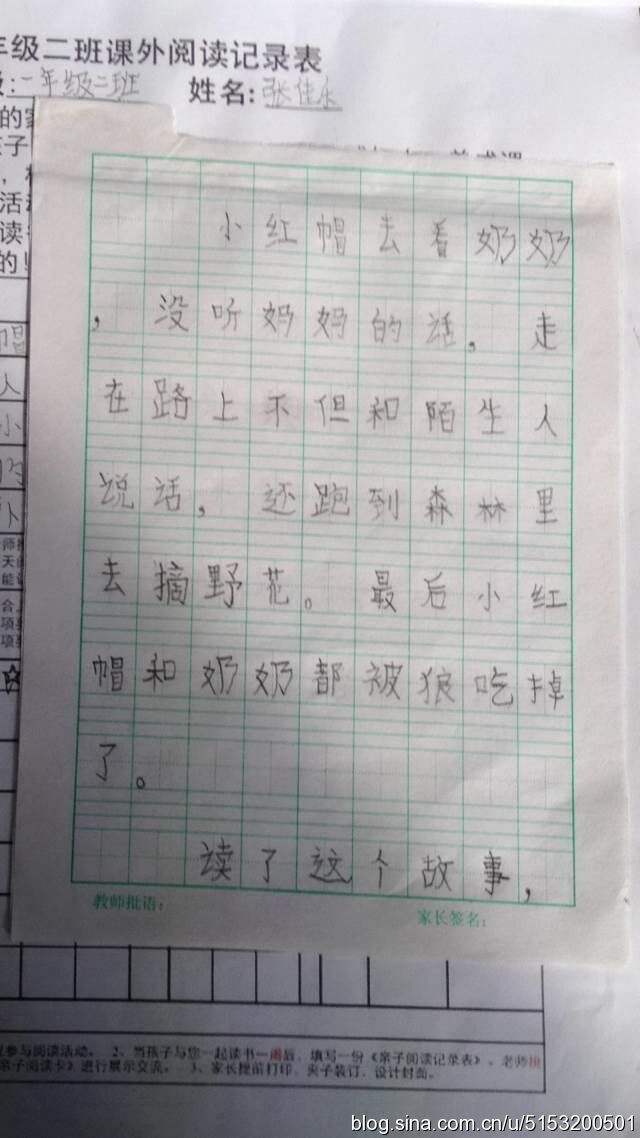 年级二班课外阅读记录表
级:一年级二班 姓名:张佳乐
小红帽去看奶奶
，没听妈妈的话，走
在路上不但和陌生人
说话，还跑到森林里
去摘野花。最后小红
帽和奶奶都被狼吃掉
了。
读了这个故事，
教师批语： 家长签名：
参与阅读活动。 2、当孩子与您一起读书一周后，填写一份《亲子阅读记录表》。老师
亲子阅读卡》进行展示交流。 3、家长提前打印，夹子装订，设计封面。
blog.sina.com.cn/u/5153200501